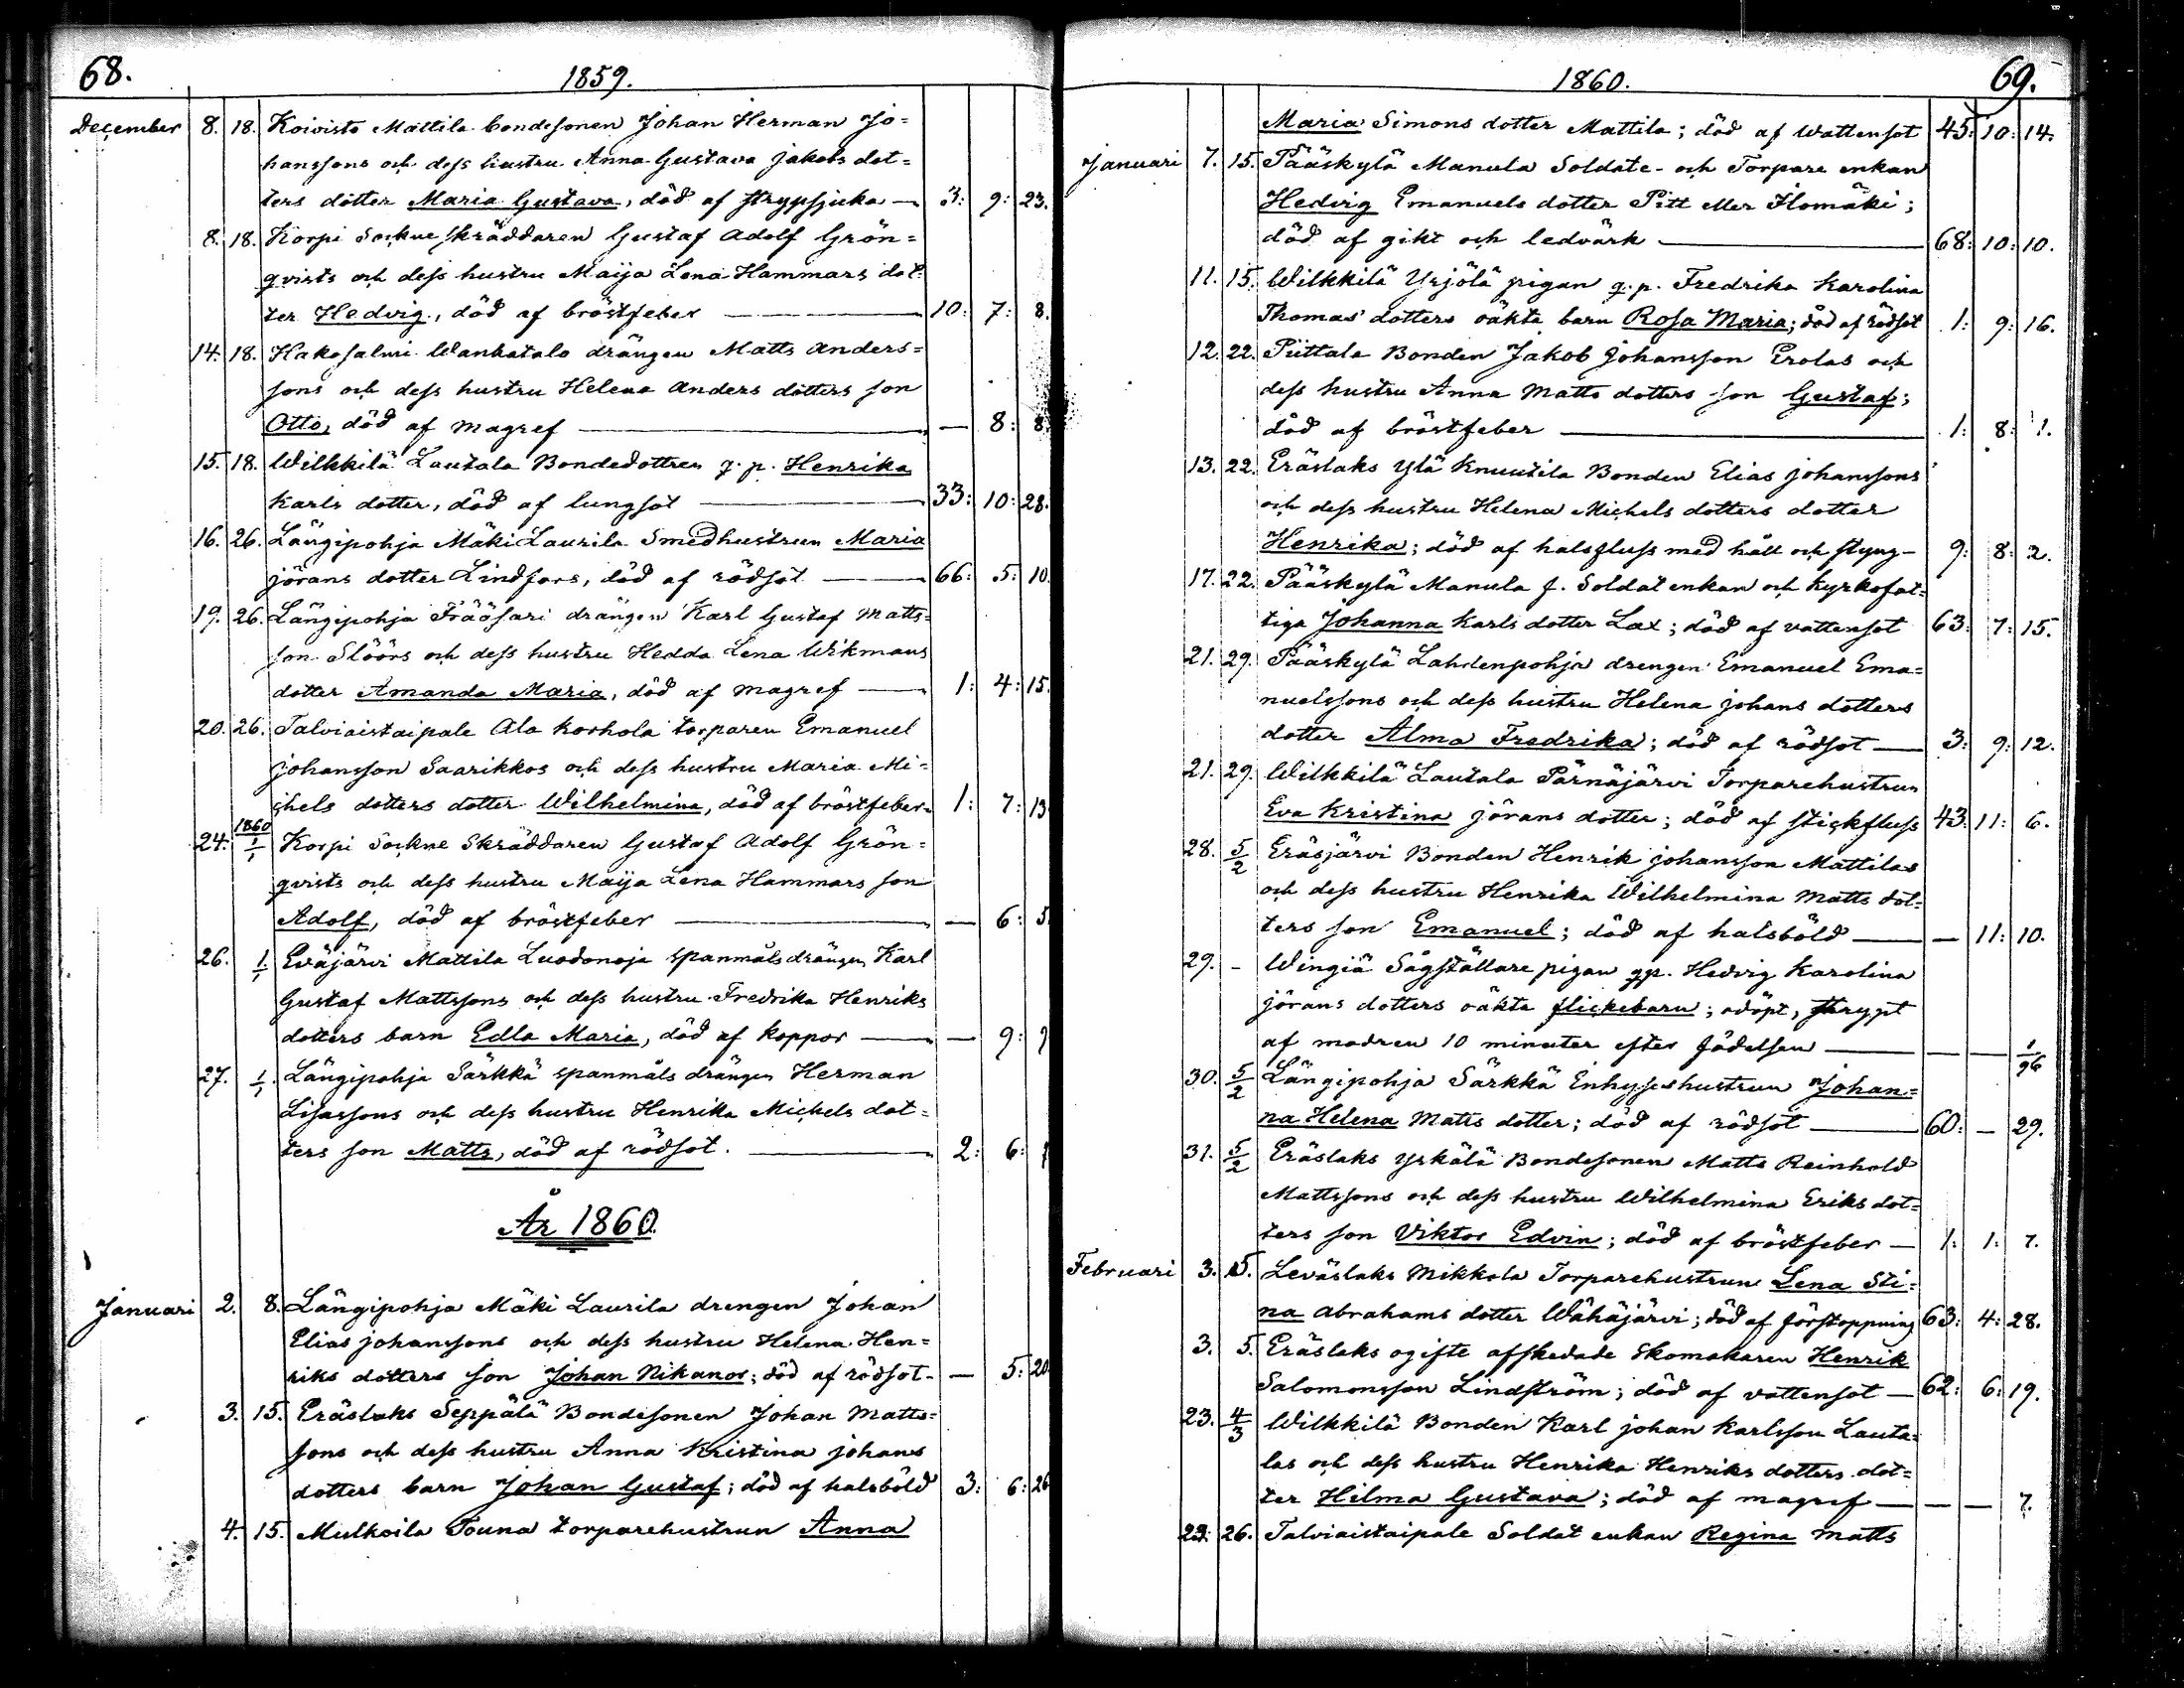 68.
1859.
December 8. 18. Koivisto Mattila bondesonen Johan Herman Jo=
hanssons och dess hustru Anna Gustava Jakobs dot=
ters dotter Maria Gustava, död af strypsjuka — 3: 9: 23.
8. 18. Korpi Sockne skräddaren Gustaf Adolf Grön=
qvists och dess hustru Maija Lena Hammars dot=
ter Hedvig, död af bröstfeber — 10: 7: 8.
14. 18. Hakosalmi Wanhatalo drängen Matts Anders=
sons och dess hustru Helena Anders dotters son
Otto, död af magref — — 8: 8
15. 18. Wilkkilä Lautala Bondedottren q. p. Henrika
Karls dotter, död af lungsot — 33: 10: 28.
16. 26. Längipohja Mäki Laurila Smedhustrun Maria
Jörans dotter Lindfors, död af rödsot — 66: 5: 10.
19. 26. Längipohja Fräösari drängen Karl Gustaf Matts=
son Slöörs och dess hustru Hedda Lena Wikmans
dotter Amanda Maria, död af magref — 1: 4: 15.
20. 26. Talviaistaipale Ala Korhola torparen Emanuel
Johansson Saarikkos och dess hustru Maria Mi=
chels dotters dotter Wilhelmina, död af bröstfeber 1: 7: 13
24. 1860 1/1 Korpi Sockne Skräddaren Gustaf Adolf Grön=
qvists och dess hustru Maija Lena Hammars son
Adolf, död af bröstfeber — — 6: 5
26. 1/1 Eväjärvi Mattila Luodonoja spanmåls drängen Karl
Gustaf Mattssons och dess hustru Fredrika Henriks
dotters barn Edla Maria, död af koppor — — 9:
27. 1/1 Längipohja Särkkä spanmåls drängen Herman
Lisassons och dess hustru Henrika Michels dot=
ters son Matts, död af rödsot. — 2: 6:
År 1860.
Januari 2. 8. Längipohja Mäki Laurila drengen Johan
Elias Johanssons och dess hustru Helena Hen=
riks dotters son Johan Nikanor; död af rödsot — — 5: 20
3. 15. Eräslaks Seppälä Bondesonen Johan Matts=
sons och dess hustru Anna Kristina Johans
dotters barn Johan Gustaf; död af halsböld 3: 6: 26
4. 15. Mulkoila Touna torparehustrun Anna
1860.
69.
Maria Simons dotter Mattila; död af wattensot 45: 10: 14.
Januari 7. 15. Pääskylä Manula Soldats- och Torpare enkan
Hedvig Emanuels dotter Pitt eller Ilomäki;
död af gikt och ledvärk — 68: 10: 10.
11. 15. Wilkkilä Yrjölä pigan q. p. Fredrika Karolina
Thomas dotters oäkta barn Rosa Maria; död af rödsot 1: 9: 16.
12. 22. Piittala Bonden Jakob Johansson Erolas och
dess hustru Anna Matts dotters son Gustaf;
död af bröstfeber — 1: 8: 1.
13. 22. Eräslaks Ylä Knuutila Bonden Elias Johanssons
och dess hustru Helena Michels dotters dotter
Henrika; död af halsfluss med håll och styng — 9: 8: 2.
17. 22. Pääskylä Manula f. Soldat enkan och kyrkofat=
tiga Johanna Karls dotter Lax; död af vattensot 63: 7: 15.
21. 29. Pääskylä Lahdenpohja drengen Emanuel Ema=
nuelssons och dess hustru Helena Johans dotters
dotter Alma Fredrika; död af rödsot — 3: 9: 12.
21. 29. Wilkkilä Lautala Pärnäjärvi Torparehustrun
Eva Kristina Jörans dotter; död af stickfluss 43: 11: 6.
28. 5/2 Eräsjärvi Bonden Henrik Johansson Mattilas
och dess hustru Henrika Wilhelmina Matts dot=
ters son Emanuel; död af halsböld — — 11: 10.
29. - Wingiä Sågställare pigan qp. Hedvig Karolina
Jörans dotters oäkta flickebarn; odöpt, strypt
af modren 10 minuter efter födelsen — — — 1/96
30. 5/2 Längipohja Särkkä Enhyseshustrun Johan=
na Helena Matts dotter; död af rödsot — 60: — 29.
31. 5/2 Eräslaks Yrkälä Bondesonen Matts Reinhold
Mattssons och dess hustru Wilhelmina Eriks dot=
ters son Viktor Edvin; död af bröstfeber — 1: 1: 7.
Februari 3. 5. Leväslaks Mikkola Torparehustrun Lena Sti=
na Abrahams dotter Wähäjärvi; död af förstoppning 63: 4: 28.
3. 5. Eräslaks ogifte affskedade Skomakaren Henrik
Salomonsson Lindström; död af vattensot — 62: 6: 19.
23. 4/3 Wilkkilä Bonden Karl Johan Karlsson Lauta=
las och dess hustru Henrika Henriks dotters dot=
ter Hilma Gustava; död af magref — — — 7.
26. Talviaistaipale Soldat enkan Regina Matts